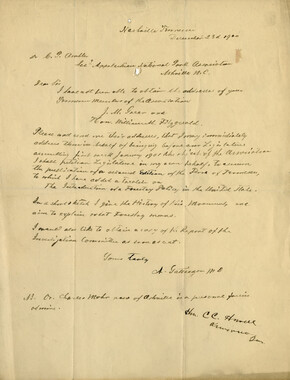 Nashville Tennessee
December 23d 1900
Dr. C. P. Ambler
Sec'y Appalachian National Park Association
Asheville N.C.
Dear Sir,
I have not been able to obtain the addresses of your
Tennessee members of the Association
J. M.
and
Hon. William
Please send me their addresses, that I may immediately
address them in behalf of bringing before our Legislature
first week January 1901 the objects of the Association
I shall petition Legislature in regular to secure
the publication of a second Edition of the Flora of Tennessee,
to which I have added a treatise on
the Introduction of a Forestry Policy in the United States.
and the History of this Movement, and
aim to explain what Forestry means.
I would also like to obtain a copy of the Report of the
Investigation Committee as soon as out.
Yours Truly
A. Gattinger M.D.
Dr. Charles Mohr now of Asheville is a personal friend
of mine.
Hon. C.C.
Tenn